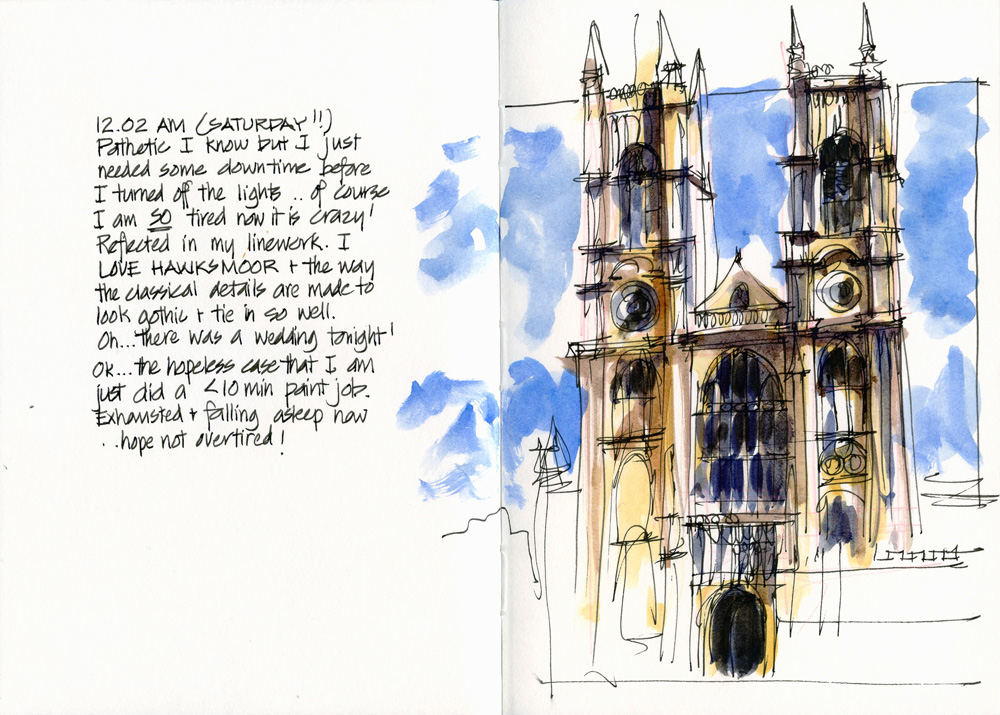 12.02 AM (SATURDAY!!)
Pathetic I know but I just
needed some downtime before
I turned off the lights .. of course
I am SO tired now it is crazy!
Reflected in my linework. I
LOVE HAWKSMOOR + the way
the classical details are made to
look gothic + tie in so well.
Oh...there was a wedding tonight!
OK...the hopeless case that I am
just did a <10 min paint job.
Exhausted + falling asleep now
..hope not overtired!